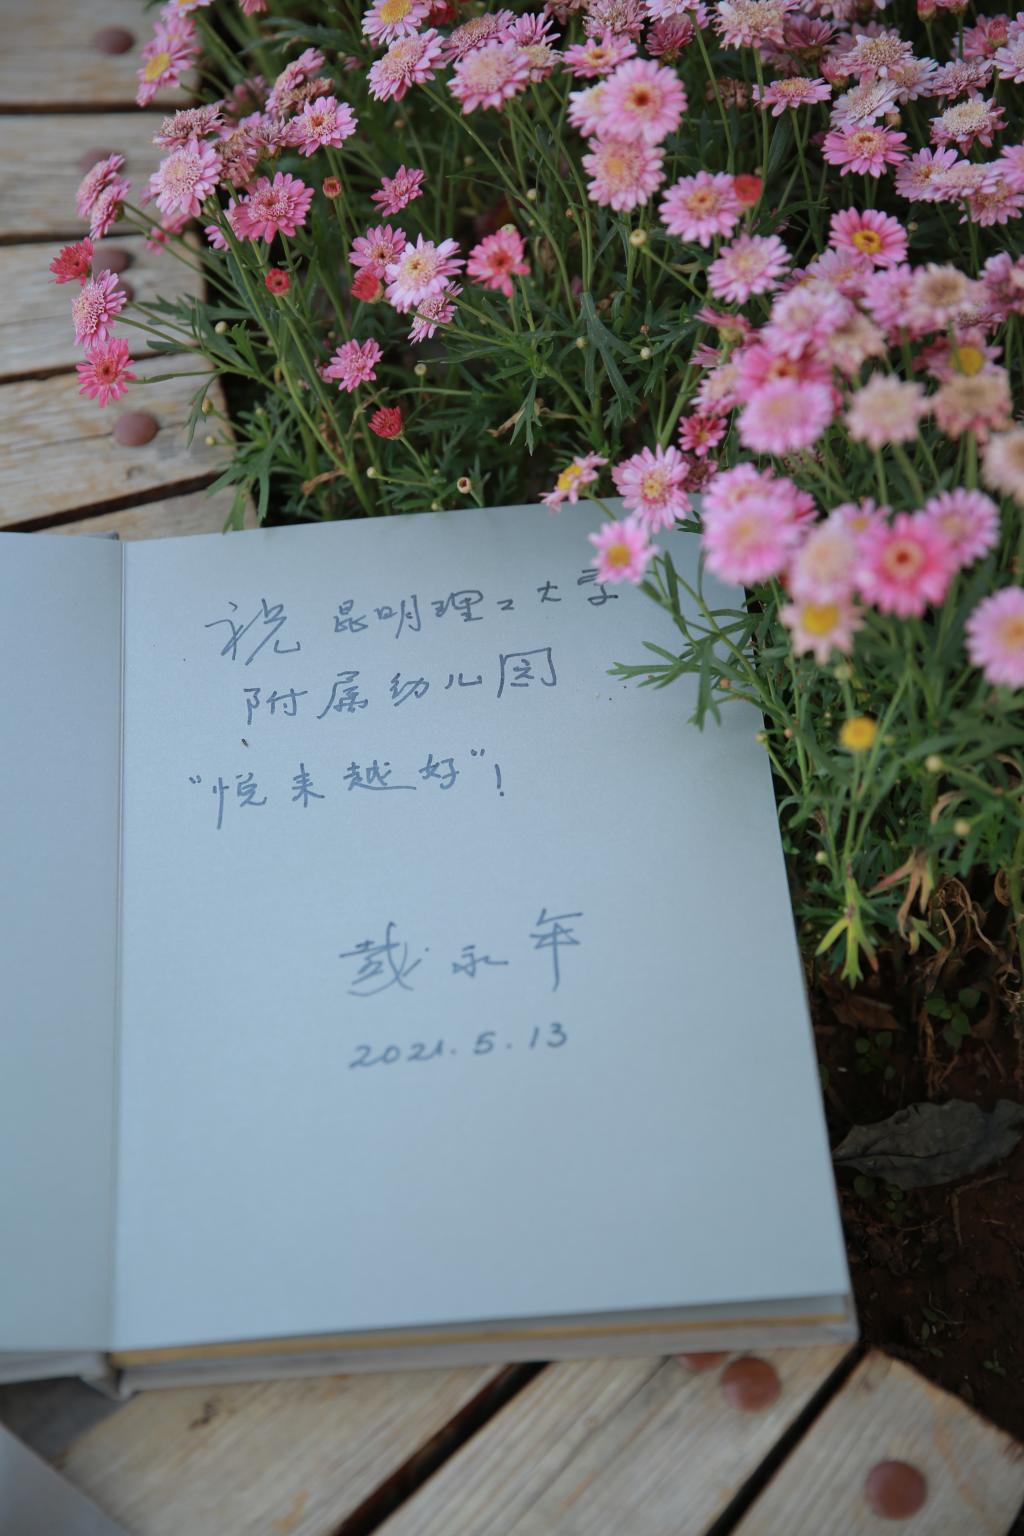 祝昆明理工大学
附属幼儿园
"悦来越好"!
戴永年
2021.5.13